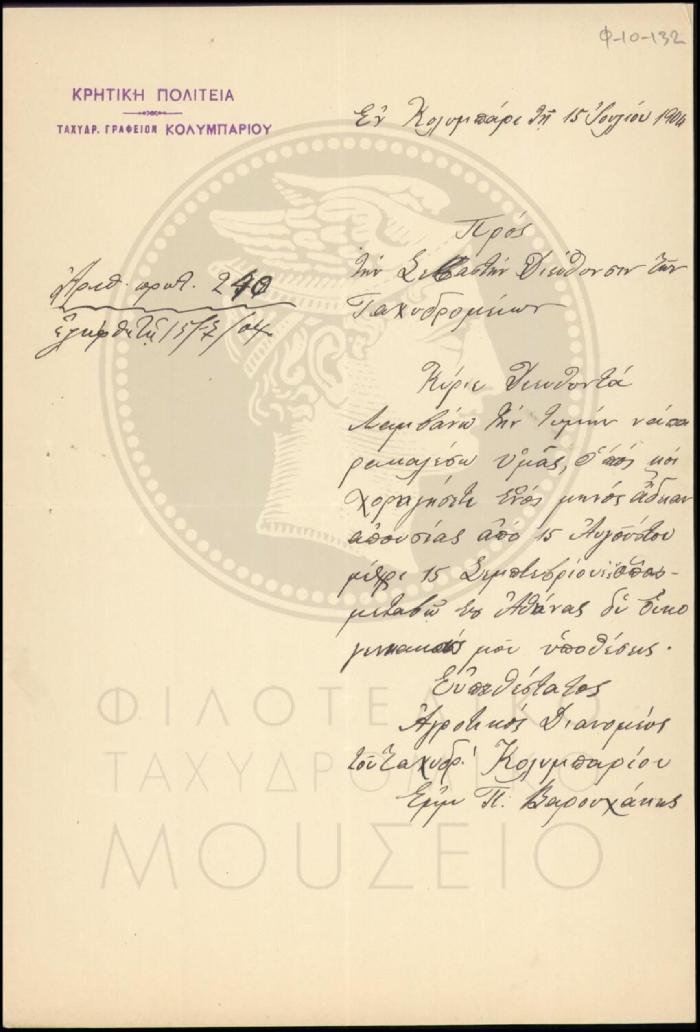 Φ-10-132
ΚΡΗΤΙΚΗ ΠΟΛΙΤΕΙΑ
ΤΑΧΥΔΡ. ΓΡΑΦΕΙΟΝ ΚΟΛΥΜΠΑΡΙΟΥ
Ἐν Κολυμπάρι τῇ 15 Ἰουλίου 1904
Πρός
τὴν Σεβαστὴν Διεύθυνσιν τῶν
Ταχυδρομείων
Ἀριθ. πρωτ. 240
ἐλήφθη τῇ 15/7/04
Κύριε Διευθυντά
Λαμβάνω τὴν τιμὴν νὰ πα
ρακαλέσω ὑμᾶς, ὅπως μοι
χοραγήσετε ἑνός μηνός ἄδειαν
ἀπουσίας ἀπό 15 Αὐγούστου
μέχρι 15 Σεμπτεβρίου ὅπως
μεταβῶ εἰς Ἀθήνας δι' οἰκο
γενιακάς μου ὑποθέσεις.
Εὐπειθέστατος
Ἀγροτικός Διανομεύς
τοῦ Ταχυδρ. Κολυμπαρίου
Ἐμμ Π. Βαρουχάκης
ΦΙΛΟΤΕΛΙΚΟ
ΤΑΧΥΔΡΟΜΙΚΟ
ΜΟΥΣΕΙΟ